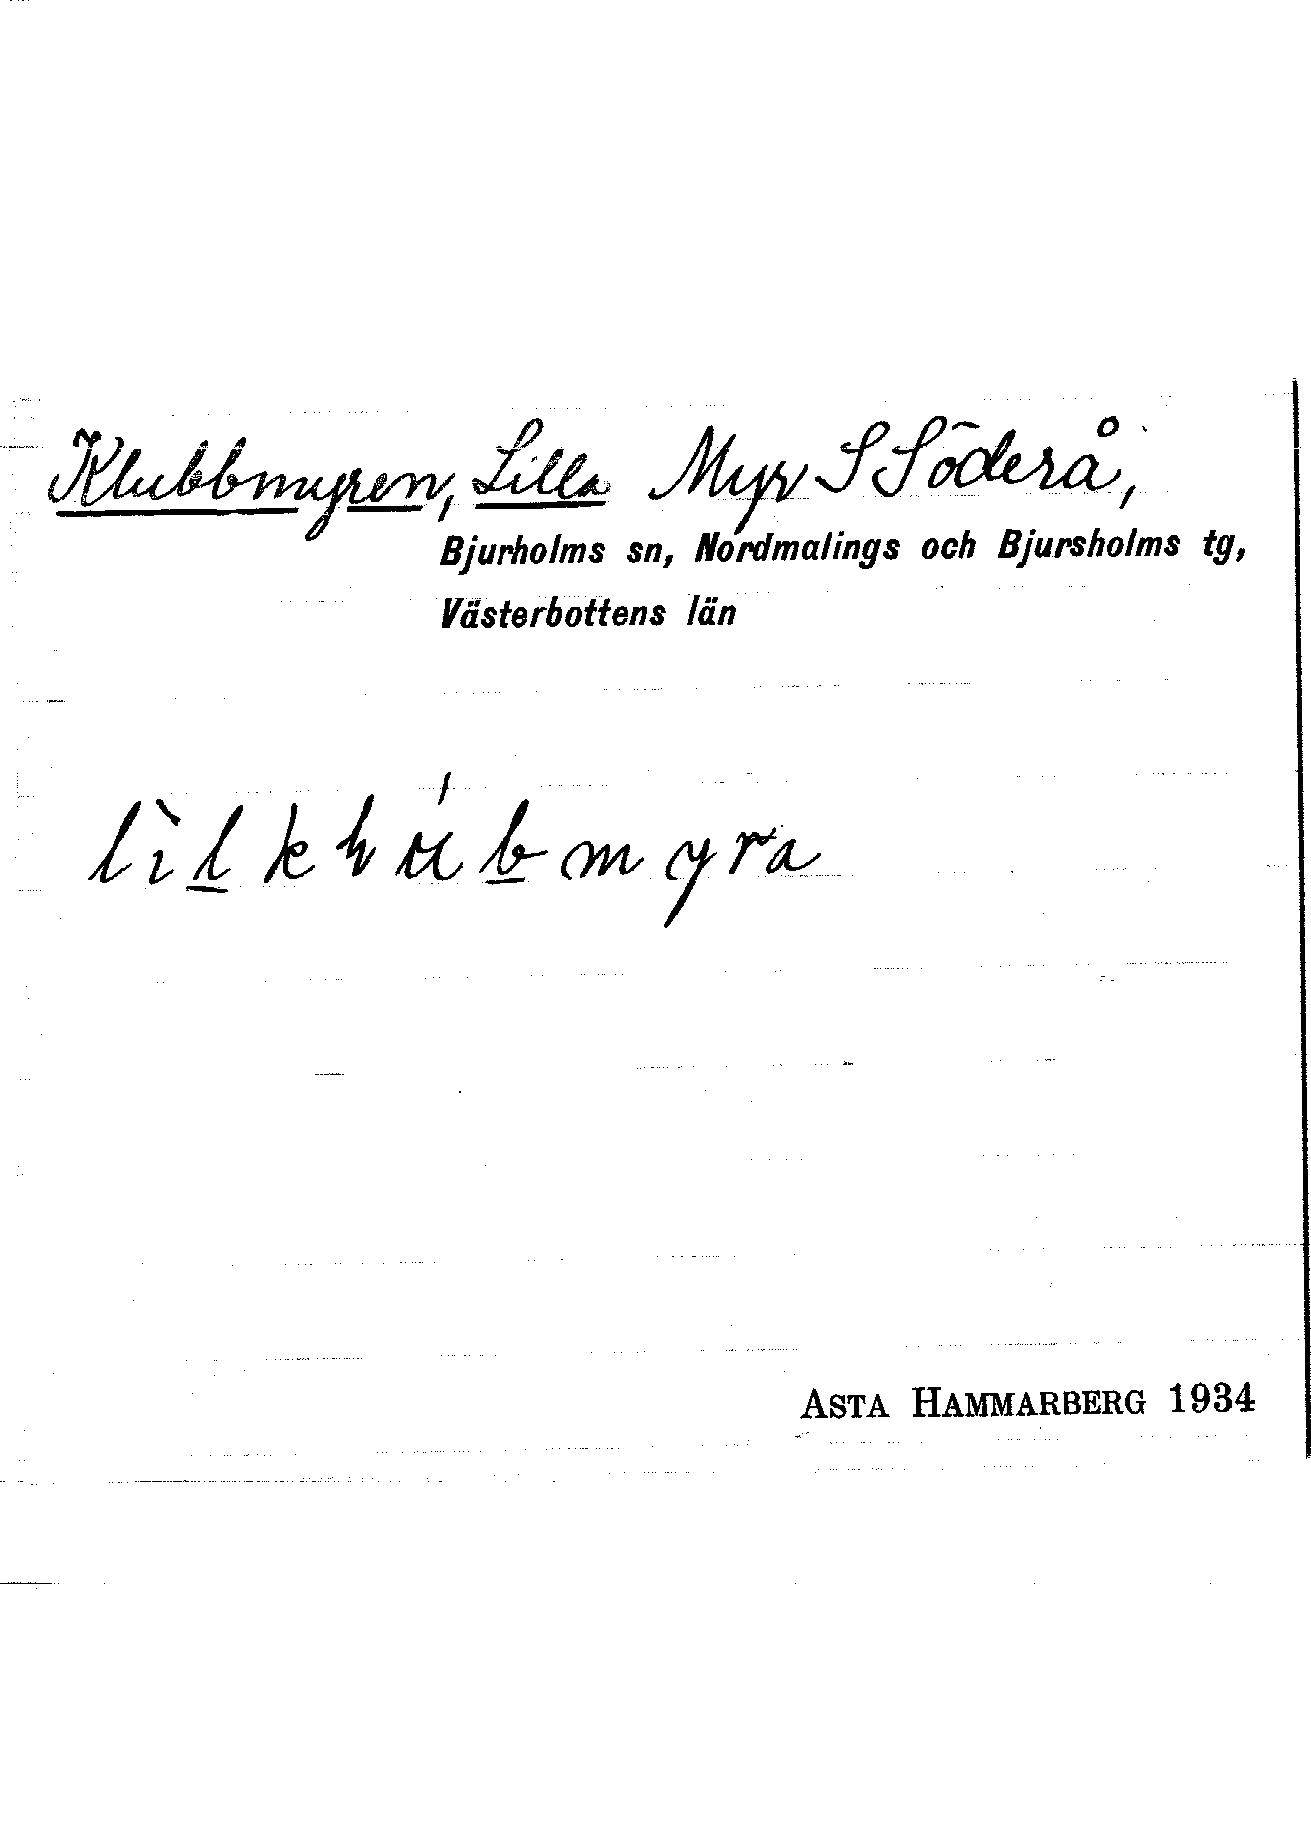 Klubbmyren, Lilla Myr S Söderå,
Bjurholms sn, Nordmalings och Bjursholms tg,
Västerbottens län
ASTA HAMMARBERG 1934